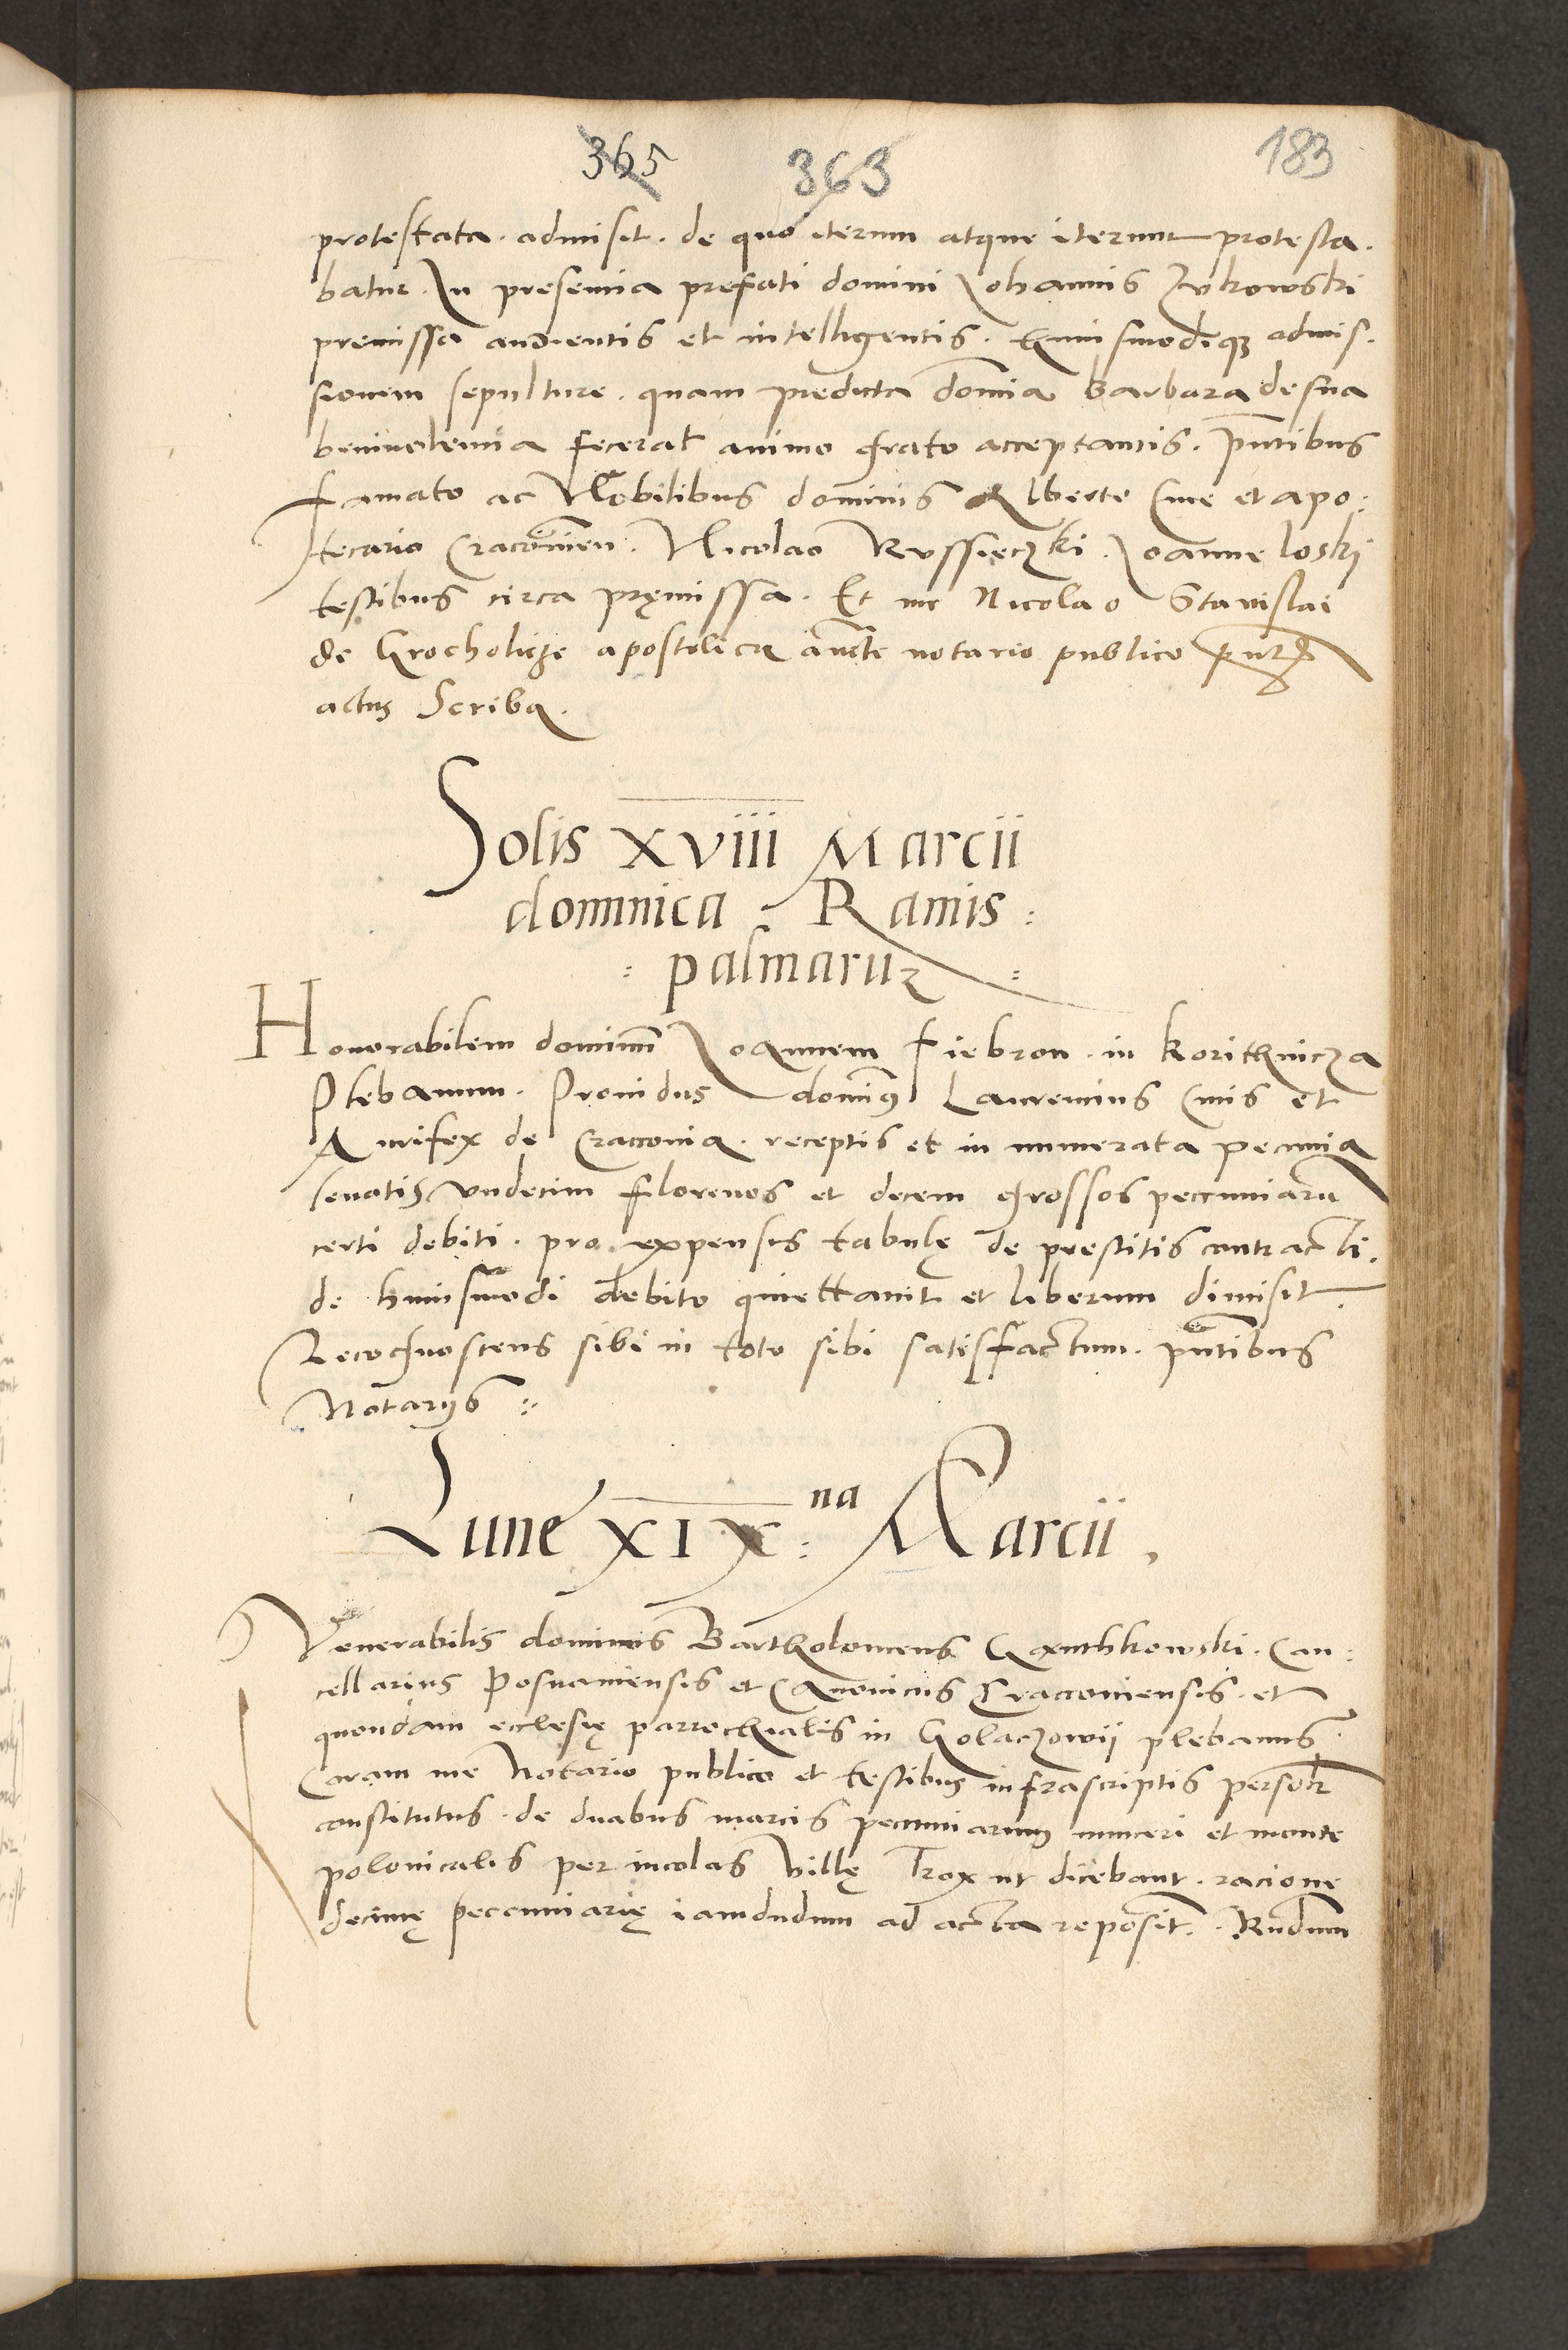 365 363 183
protestata . admisit . de quo iterum atque iterum protesta.
batur . In presencia prefati domini Johannis Zukowski
premissa audientis et intelligentis . Huiusmodiqz admis.
sionem sepulture . quam predicta domia Barbara de sua
beniuolencia fecerat animo grato acceptantis . pntibus
famato ac Nobilibus dominis Alberto Ciue et apo:
tecario Cracouien . Nicolao Russieczki . Joanne Loski
testibus circa pręmissa . Et me Nicolao Stanislai
de Grocholicze apostolica aucte notario publico
actus Scriba .
Solis XVIII Marcii
dominica Ramis :
: palmaruz :
Honorabilem dominum Joannem Fiebron . in Korithnicza
Plebanum . Prouidus dominus Laurencius Ciuis et
Aurifex de Craccouia . receptis et in numerata pecunia
leuatis vndecim florenos et decem grossos pecuniaru
certi debiti . pro expensis tabulę de prestitis contracti .
de huiusmodi debito quiettauit et liberum dimisit .
Recognoscens sibi in toto sibi satisfactum . pntibus
Notarijs ::
Lune XIX :na Marcii .
Venerabilis dominus Bartholomeus Ganthkowski . Can:
cellarius Posnaniensis et Canonicus Craccouiensis . et
quondam ecclesię parrochialis in Golaczowij plebanus .
Coram me Notario publico et testibus infrascriptis personlr
constitutus . de duabus marcis pecuniarum numeri et monete
polonicalis per incolas villę Trox ut dicebant . racione
decimę pecuniarię iamdudum ad acta reposit . Rudum